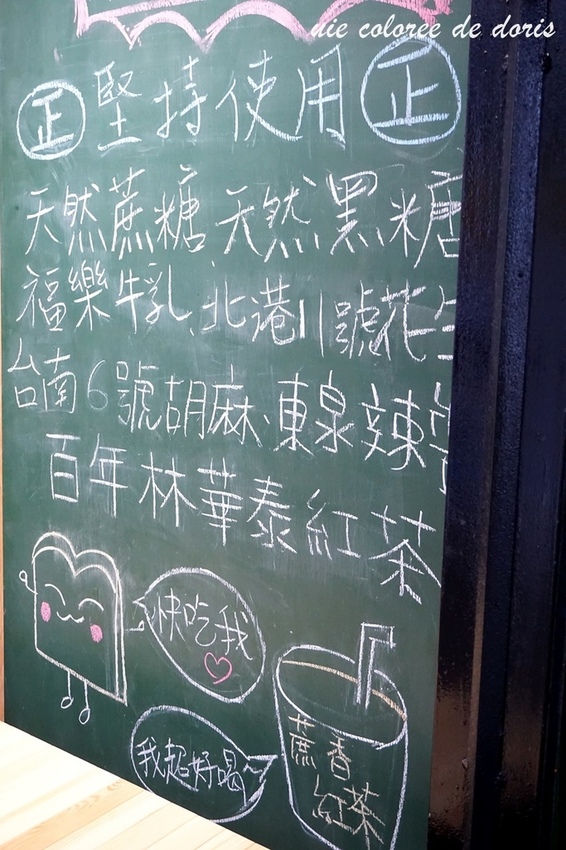 nie coloree de doris
正 堅持使用 正
天然蔗糖 天然黑糖
福樂牛乳、北港11號花生
台南6號胡麻、東泉辣
百年林華泰紅茶
快吃我
我超好喝~
蔗香
紅茶